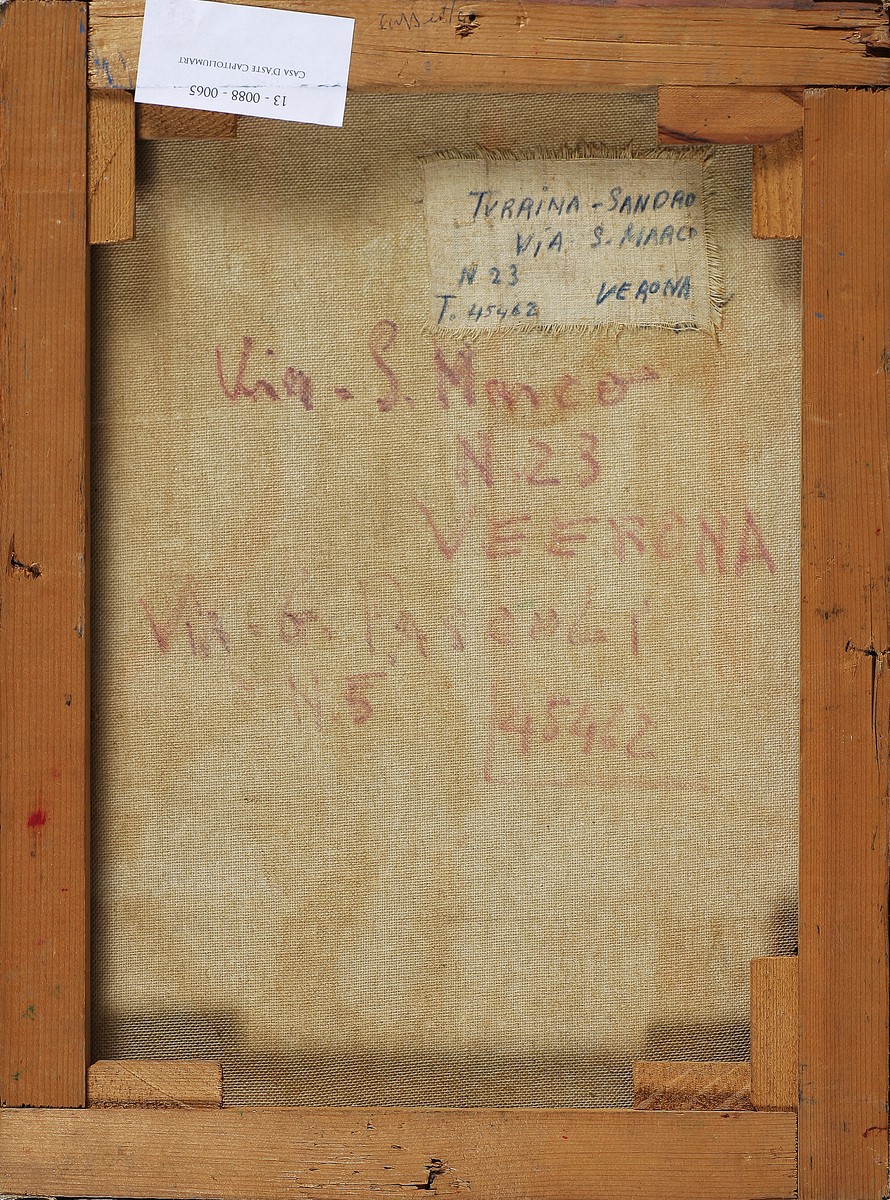 13 - 0088 - 0065
CASA D'ASTE CAPITOLIUMART
TURRINA - SANDRO
VIA S. MARCO
N 23 VERONA
T. 45462
Via - S. Marco
N. 23
VEERONA
Via. G. Pascoli
N. 5
45462